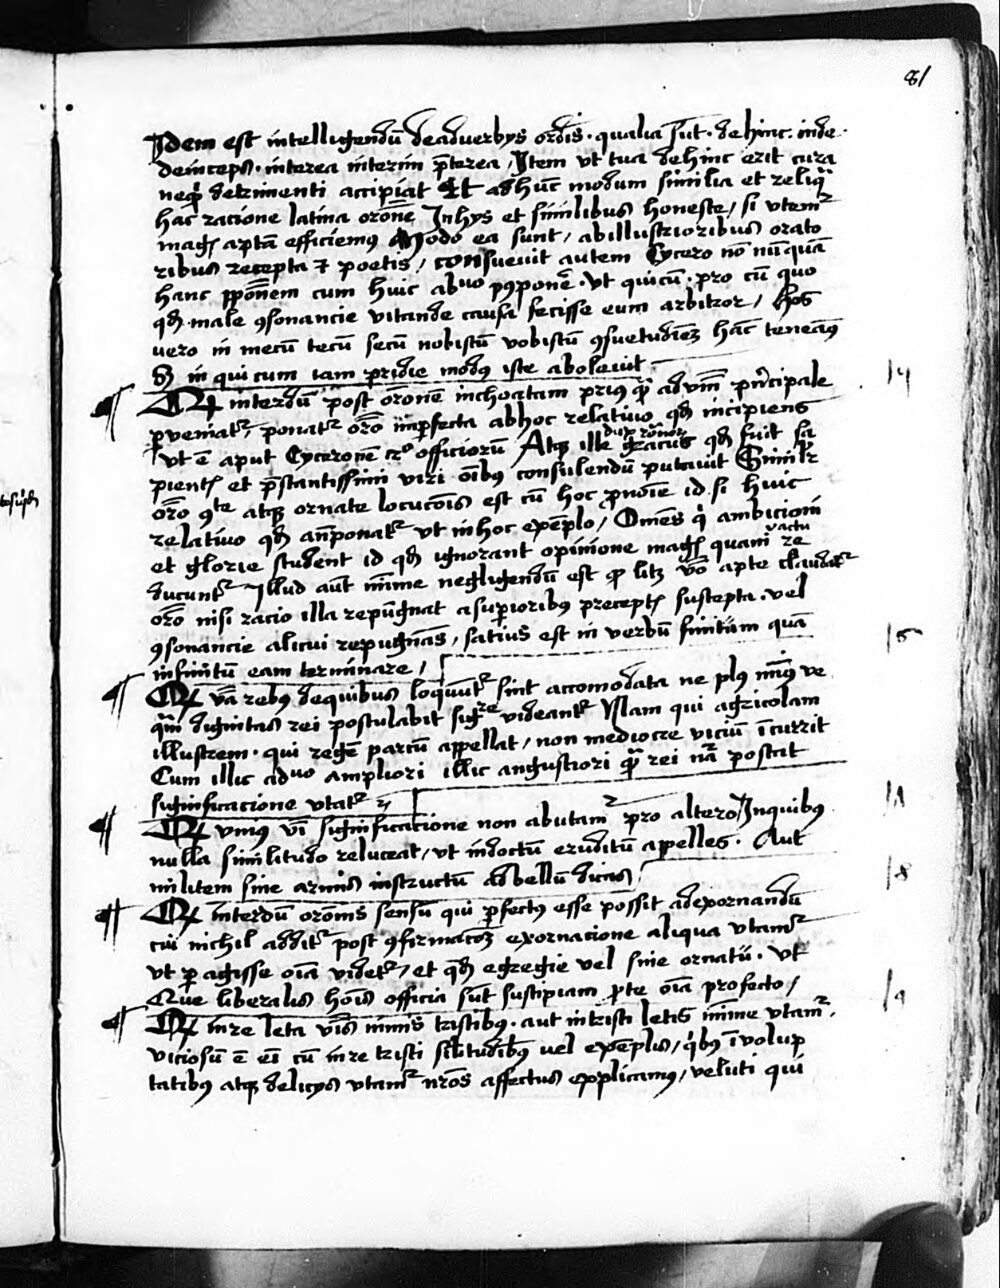 81
Idem est intelligendū deadverbys ordīs · qualia sūt · dehinc · inde ·
deinceps · interea interim p̄terea Item vt tua dehinc erit cura
neq̣ detrimenti accipiat Et adhūc modum similia et reliq̄
hac racione latina orōne Inhys et similibus honeste / si vtemr
magꝭ aptā efficiemꝯ Modo ea sunt / abillustrioribus orato
ribus recepta ⁊ poetis / consuevit autem Cycero nō nūquā
hanc p̄pōnem cum huic abuo pꝯponē · vt quicū · pro cū quo
qđ male ꝯsonancie vitande causa fecisse eum arbitror / hos
vero in mecū tecū secū nobiscū vobiscū ꝯsuetudiēz hāc teneāꝯ
Sꝫ in qui cum iam pridie modꝯ iste abolevit
¶ Qꝫ interdū post orōnē inchoatam priꝰ q̄ adv̄m prīcipale
ꝑveniatr / ponatr orō imꝑfecta abhoc relativo qđ incipiens
vt ē aput Cyceronē officiorū / Atqꝫ ille gracius qđ fuit sa
pientꝭ et p̄stantissimi viri oībꝯ consulendū putavit Similr
orō ꝯte atqꝫ ornate locucōis est cū hoc ꝓnoīe id si huic
relativo qđ an̄ponatr vt inhoc exēplo / Omēs q̇ ambicioni
et glorie student id qđ ignorant opinione magꝭ quam re
ducuntr Illud aūt mīme negligendū est apte claudatr
orō nisi racio illa repūgnat asuꝑioribꝯ preceptꝭ suscepta · vel
ꝯsonancie alicui repugnās / satius est in verbū finitum quā
infinitū eam terminare /
¶ Qꝫ v̄ba rebꝯ dequibus loquūtr sint accomodata ne plꝯ mīꝯ ve
q̄m dignitas rei postulabit sigre videantr Nam qui agricolam
illustrem · qui regē parcū appellat / non mediocre viciū īcurrit
Cum illic aduo ampliori illic angustiori q̄ rei nā poscat
significacione vtatr
¶ Qꝫ vniꝯ v̄i significacione non abutamr pro altero / Inquibꝯ
nulla similitudo reluceat / vt indoctū eruditū appelles · Aut
militem sine armis instructū adbellū dicas
¶ Qꝫ interdū orōnis sensū qui ꝑfectꝯ esse possit adexornandū
cui nichil additr post ꝯfirmacōēz exornacione aliqua vtamr
vt ꝑ agisse oīa videtr / et qđ egregie vel sine ornatu · vt
Que liberalis hoīs officia sūt suscipiam ꝑte oīa profecto /
¶ Qꝫ inre leta v̄bis nimis tristibꝯ · aut intristi letis mīme vtamr ·
viciosū ē eī cū inre tristi silitudībꝯ vel exēplis / q̇bꝯ ī volup
tatibꝯ atqꝫ delicys vtamr nr̄os affectus explicamꝯ / veluti qui